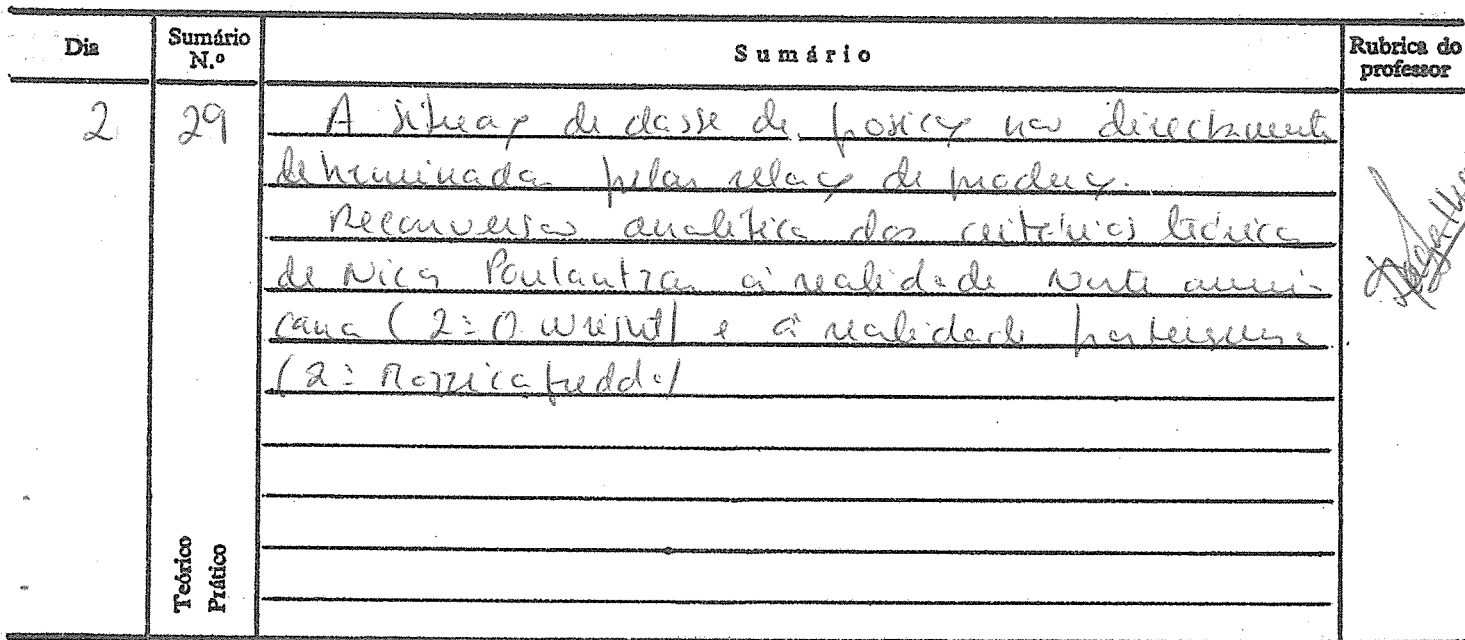 Dia Sumário N.º Sumário Rubrica do professor
2 29 A situaç de classe de posicç não directamente
determinadas pelas relaç de produç.
Reconversão analítica dos critérios teóricos
de Nicos Poulantzas à realidade Norte ameri-
cana (2: O. Wright) e à realidade portuguesa
(2: Mozzicafreddo)
Teórico
Prático